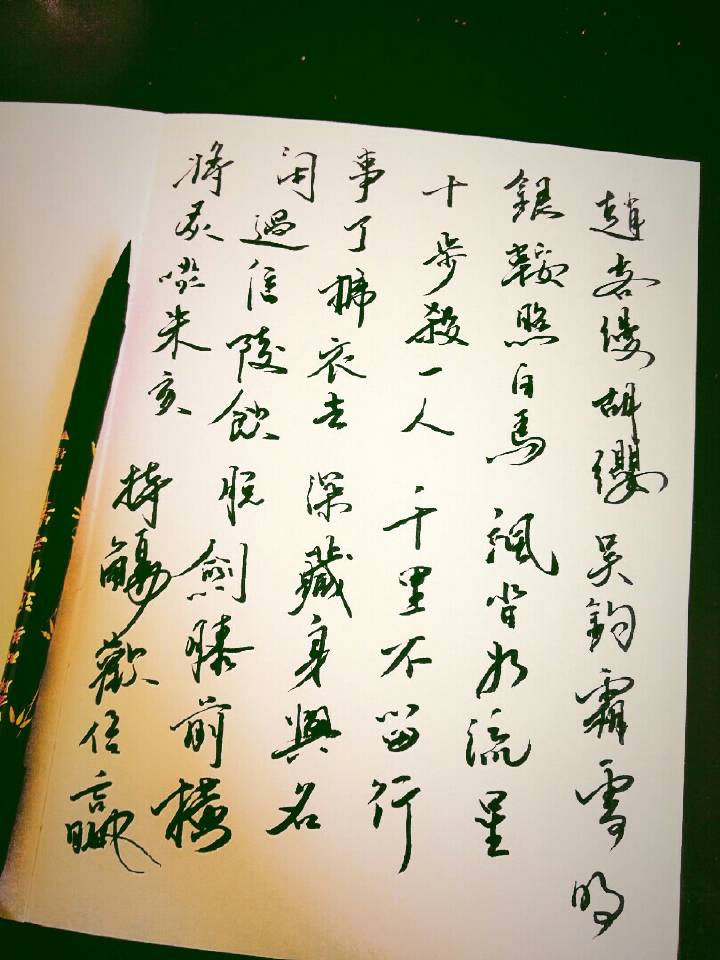 趙客縵胡纓 吴鈎霜雪明
銀鞍照白馬 颯沓如流星
十步殺一人 千里不留行
事了拂衣去 深藏身與名
閑過信陵飲 脱劍膝前橫
將炙啖朱亥 持觴勸侯嬴